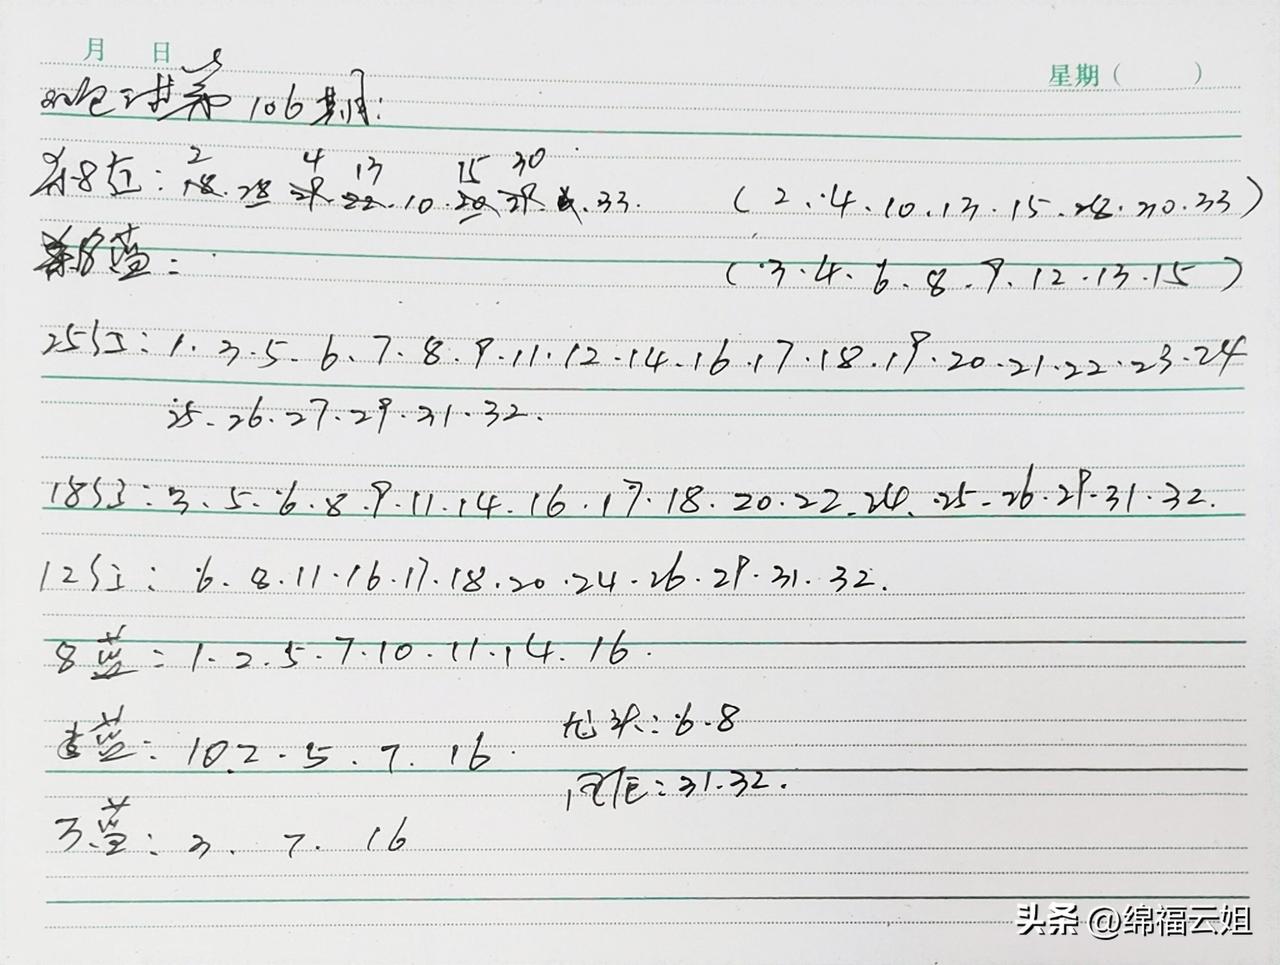 月 日
星期( )
双色球第106期:
杀8红: 2 4 13 15 30
18. 28 29. 22. 10. 20 29. 33. (2.4.10.13.15.28.30.33)
杀8蓝: (3.4.6.8.9.12.13.15)
25红: 1.3.5.6.7.8.9.11.12.14.16.17.18.19.20.21.22.23.24
25.26.27.29.31.32.
18红: 3.5.6.8.9.11.14.16.17.18.20.22.24.25.26.29.31.32.
12红: 6.8.11.16.17.18.20.24.26.29.31.32.
8蓝: 1.2.5.7.10.11.14.16.
蓝: 10.2.5.7.16.
龙头: 6.8
凤尾: 31.32.
3蓝: . 7. 16
头条 @绵福云姐